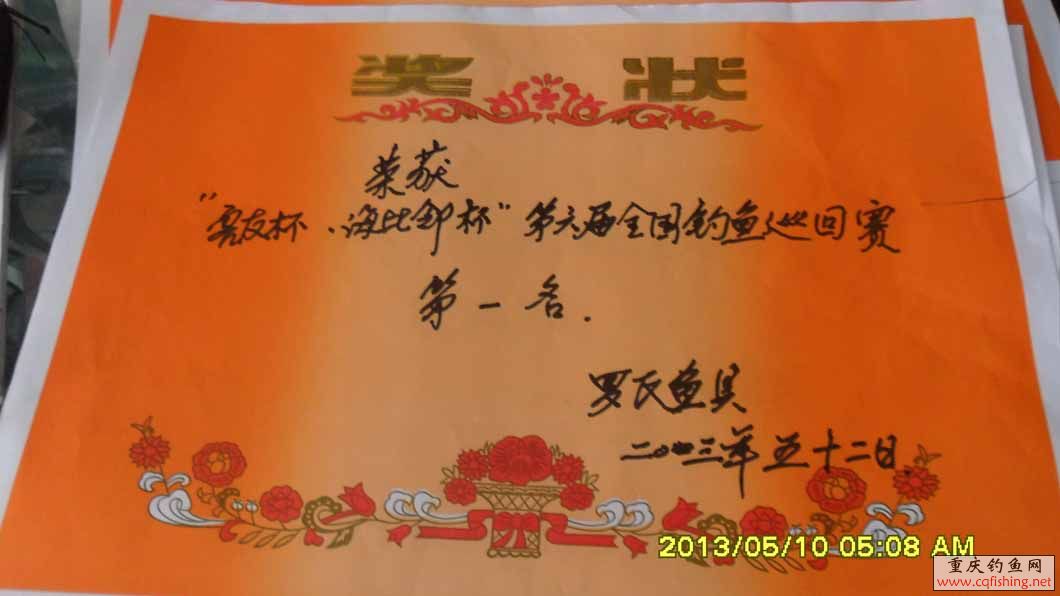 奖状
荣获
"客友杯、海比邻杯"第六届全国钓鱼巡回赛
第一名.
罗氏鱼具
二〇一三年五十二日.
2013/05/10 05:08 AM
重庆钓鱼网
www.cqfishing.net